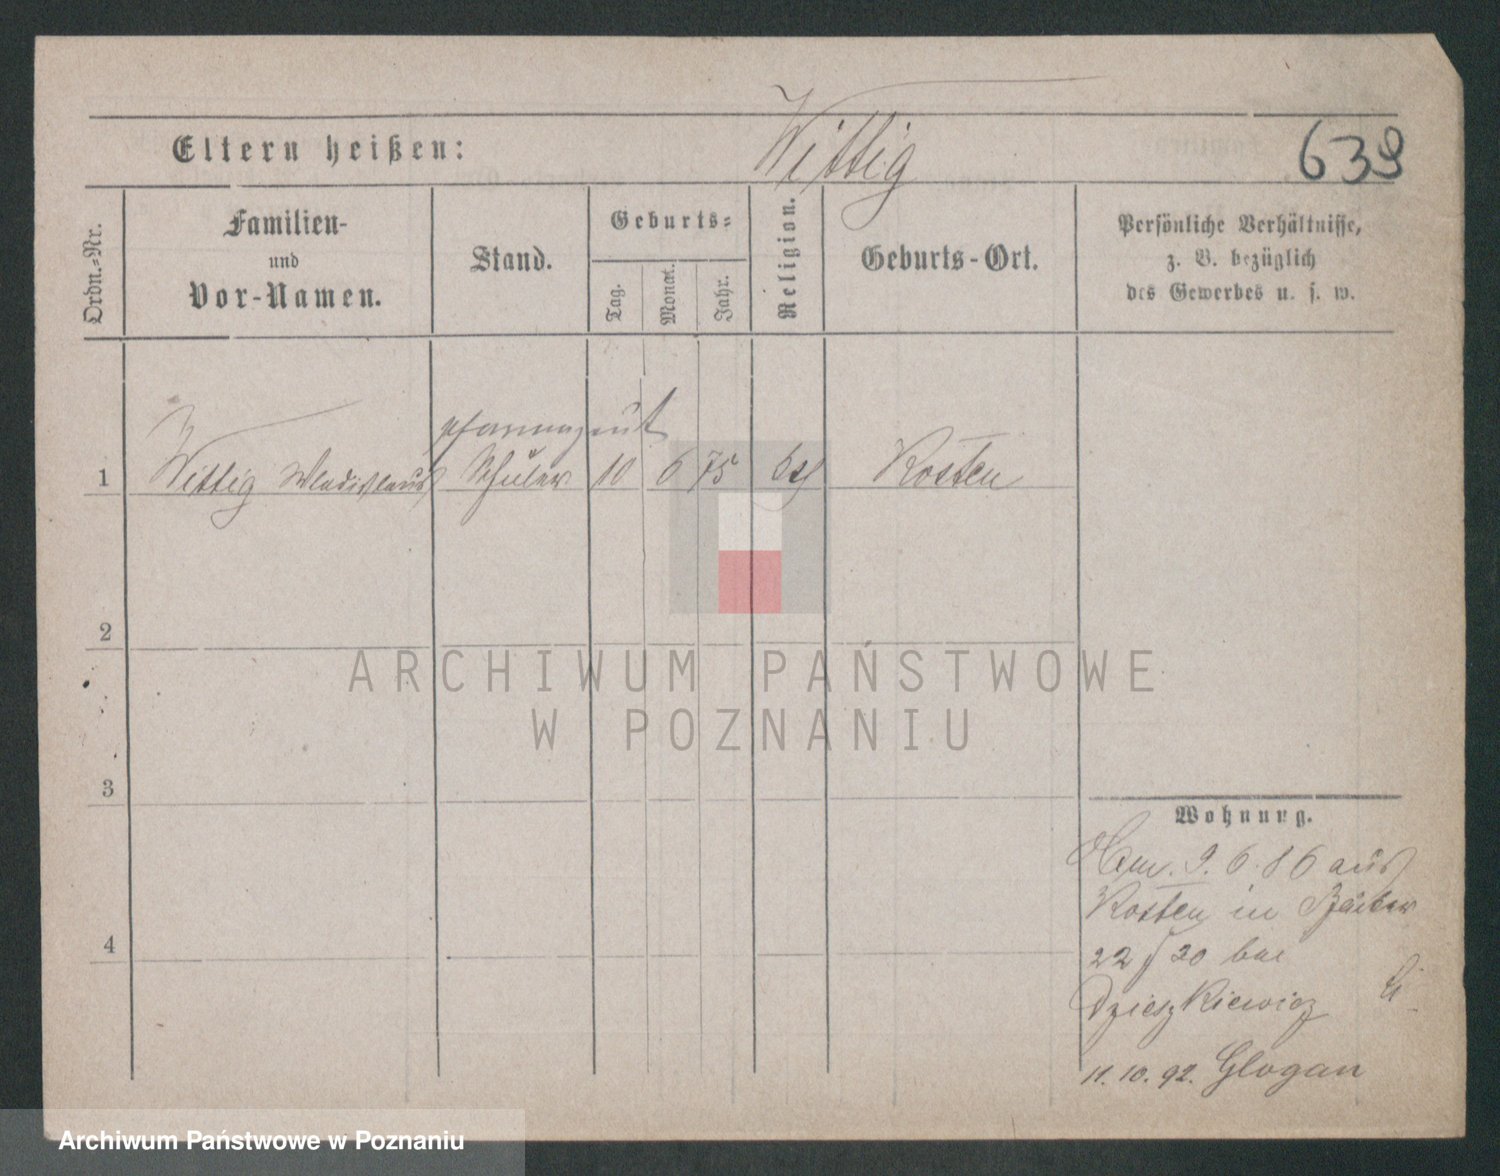 Wittig
639
Eltern heißen:
Ordn.-Nr.
Familien-
und
Vor-Namen.
Stand.
Geburts-
Tag.
Monat.
Jahr.
Religion.
Geburts-Ort.
Persönliche Verhältnisse,
z. B. bezüglich
des Gewerbes u. s. w.
1
Wittig Wladislaus Schüler 10 6 75 Kosten
2
3
4
ARCHIWUM PAŃSTWOWE
W POZNANIU
Wohnung.
9. 6. 86 aus
Kosten in
22 / 30 bei
Dzieszkiewicz
11. 10. 92. Glogau
Archiwum Państwowe w Poznaniu